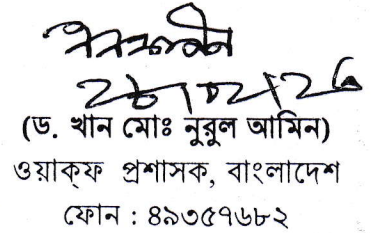 (ড. খান মোঃ নুরুল আমিন)
ওয়াক্ফ প্রশাসক, বাংলাদেশ
ফোন : ৪৯৩৫৭৬৮২